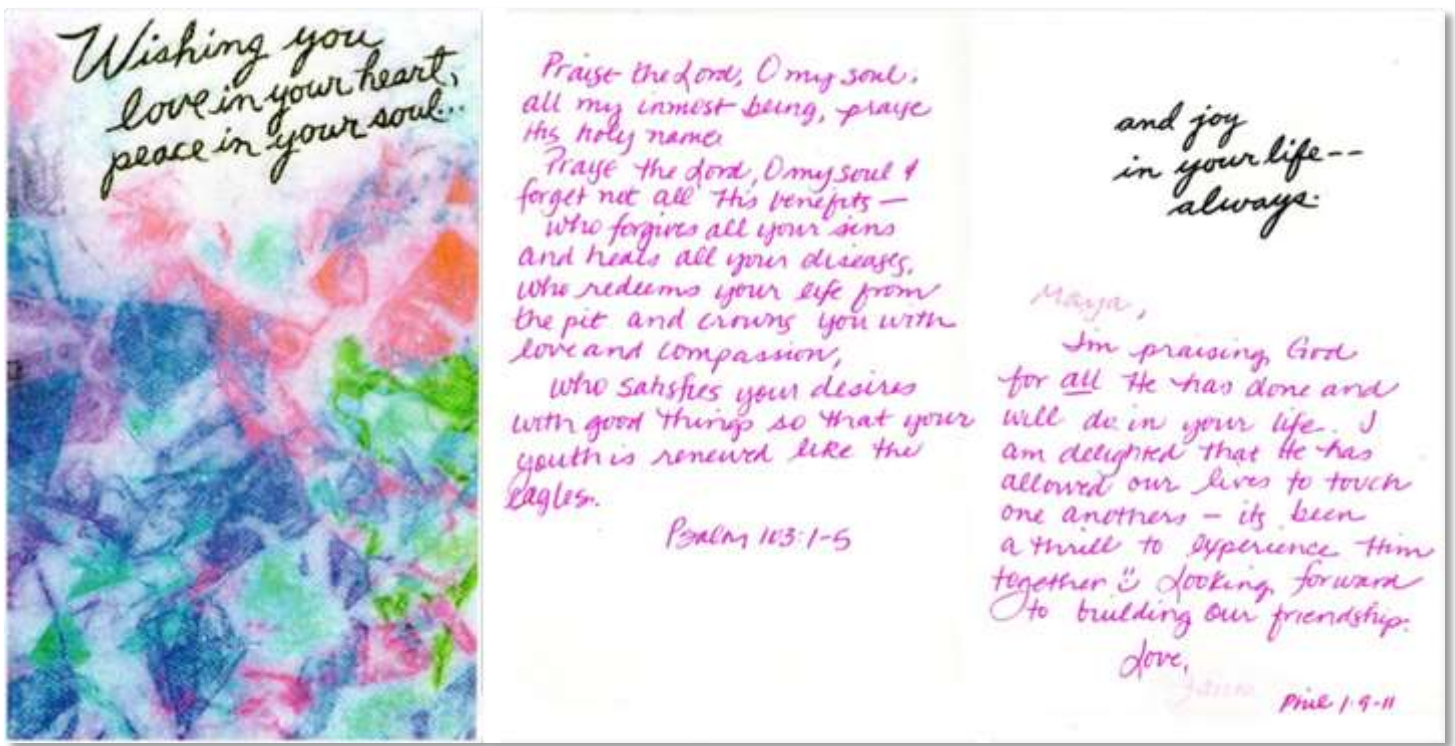 Wishing you
love in your heart,
peace in your soul...
Praise the Lord, O my soul,
all my inmost being, praise
His holy name.
Praise the Lord, O my soul &
forget not all His benefits —
who forgives all your sins
and heals all your diseases,
who redeems your life from
the pit and crowns you with
love and compassion,
who satisfies your desires
with good things so that your
youth is renewed like the
eagles.
Psalm 103:1-5
and joy
in your life--
always.
Maya,
Im praising God
for all He has done and
will do in your life. I
am delighted that He has
allowed our lives to touch
one anothers — its been
a thrill to experience Him
together Looking forward
to building our friendship.
Love,
Phil 1:9-11